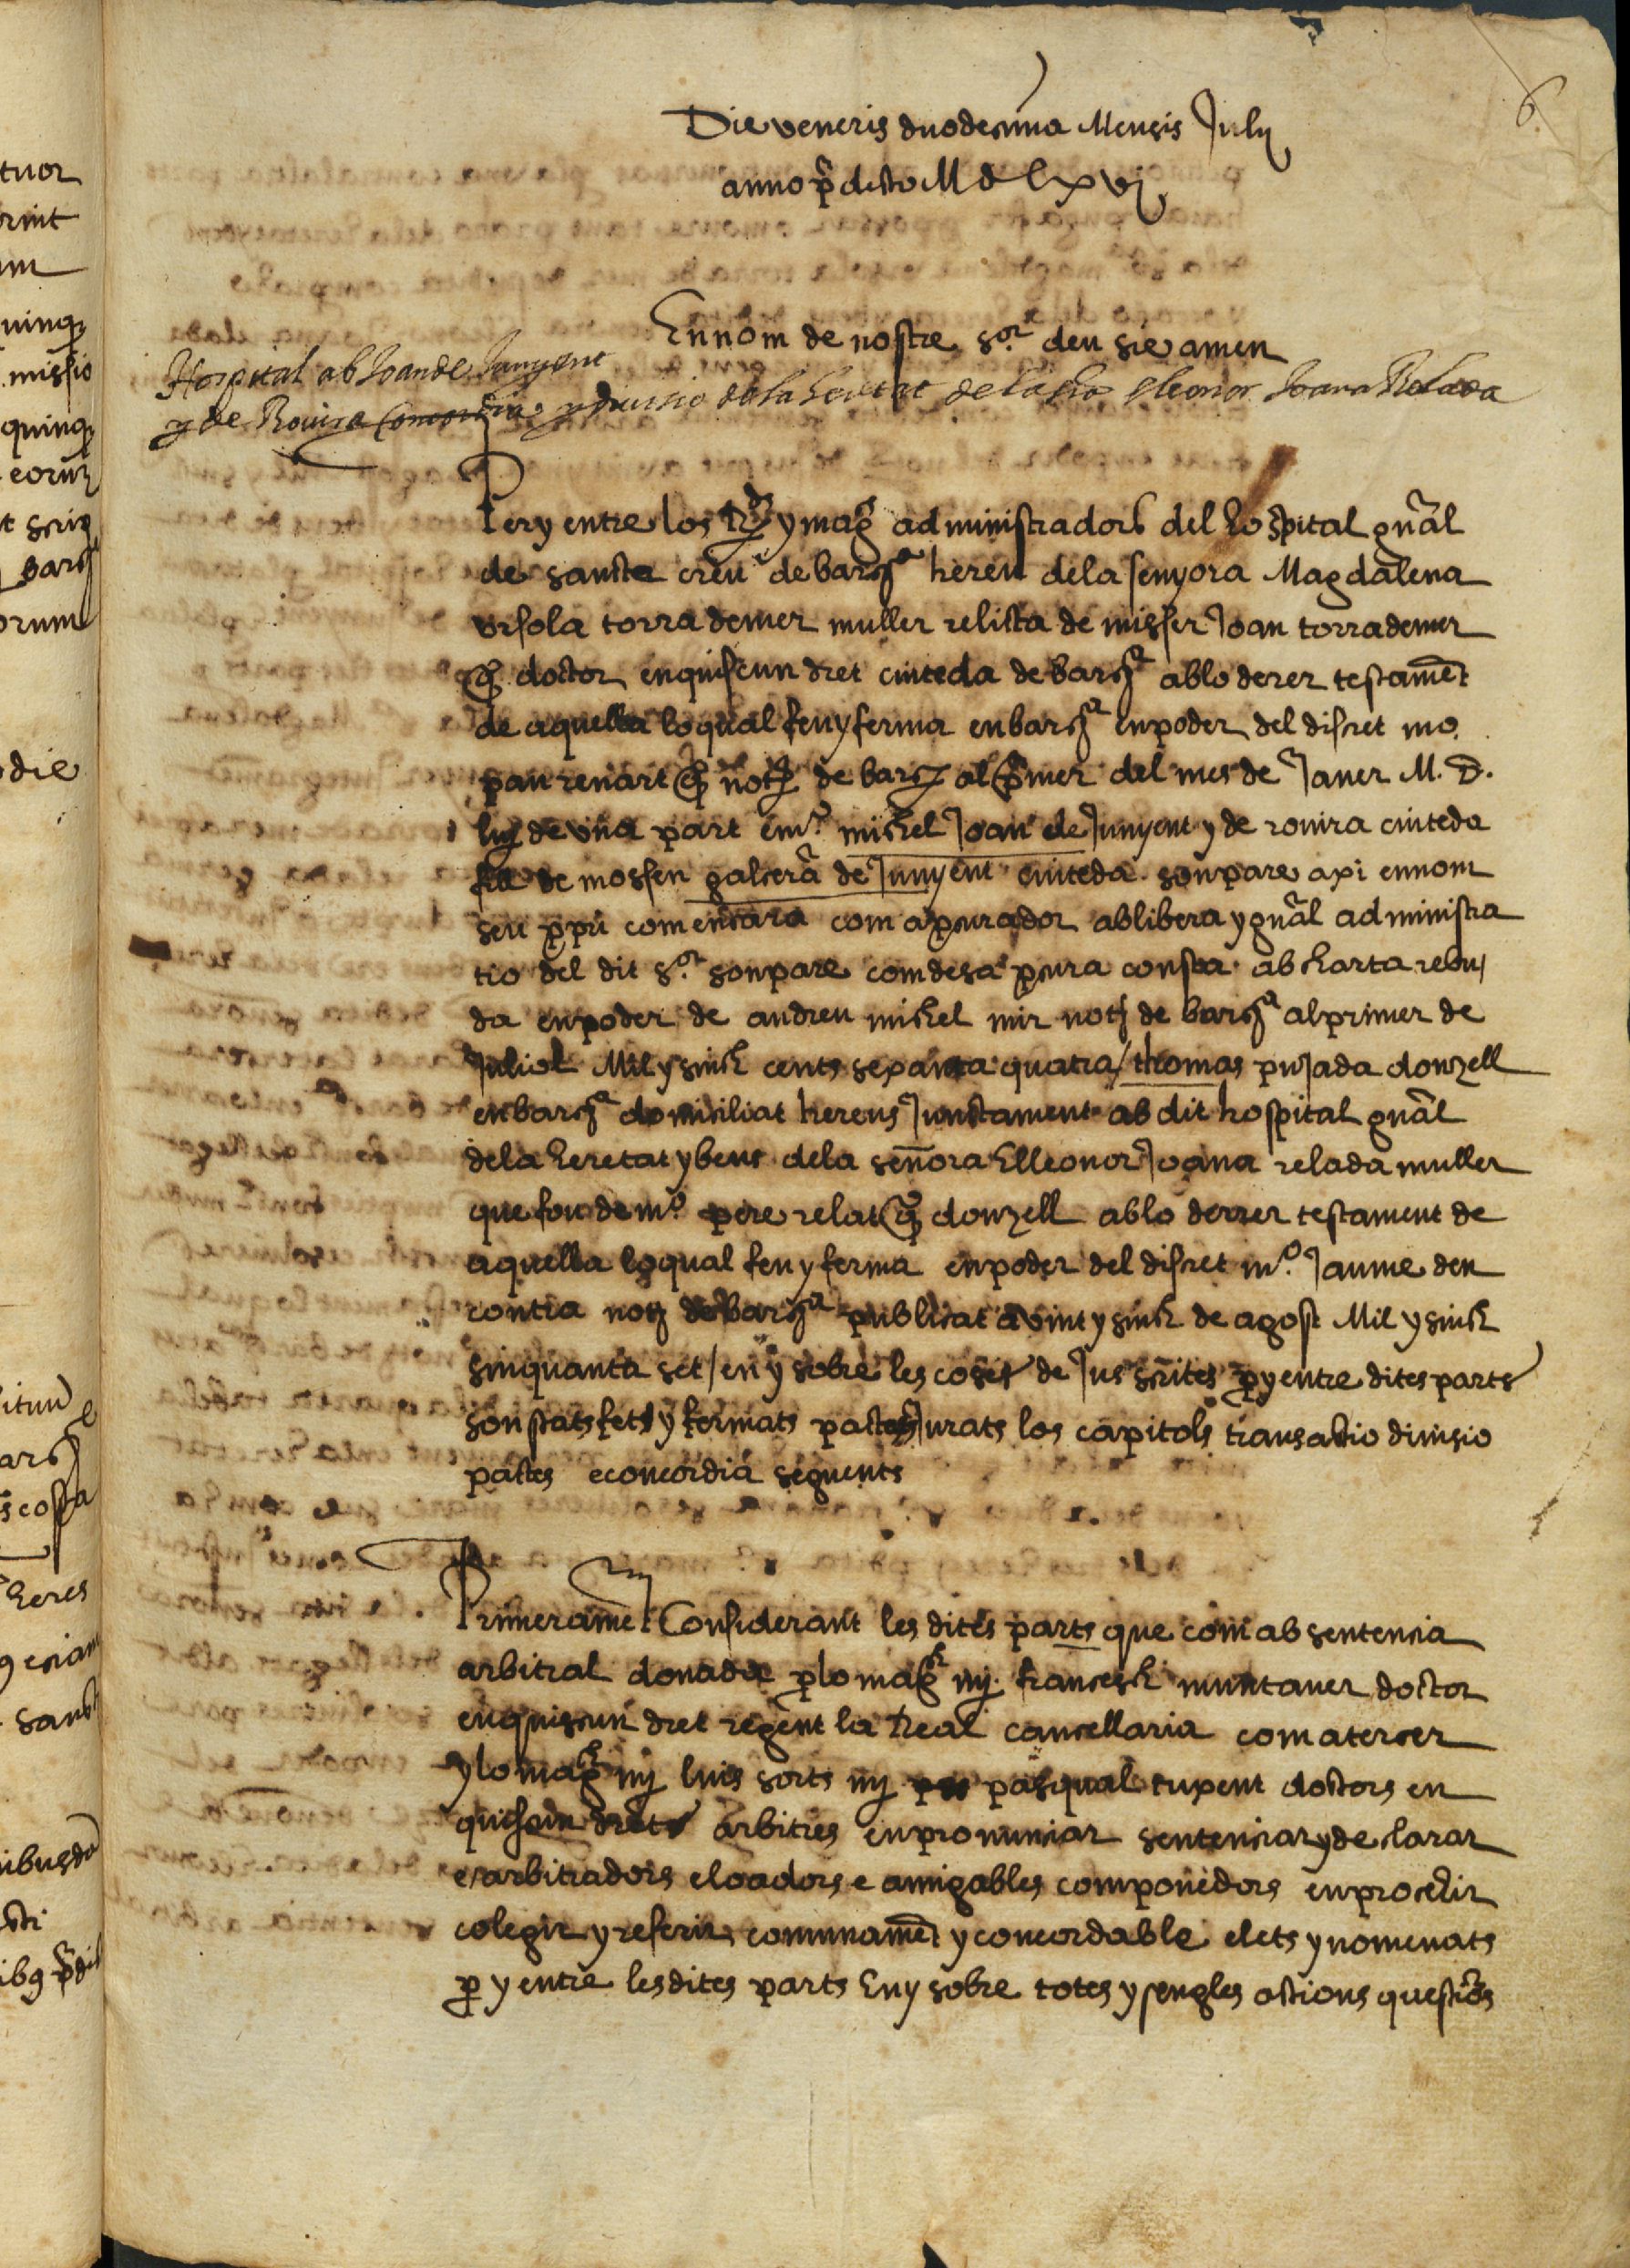 6
Die veneris duodecima Mensis Julij
anno p̃dicto M d Lxvj
En nom de nostre s.or deu sie amen
Hospital ab Joan de Junyent
y de Rovira Concordia y divisio de la heretat de la sra Eleonor Joana Relada
Per y entre los R.ds y magᶜˢ administradors del hospital gñal
de sancta creu de barᶜª hereu dela senyora Magdalena
ursola torrademer muller relicta de misser Joan torrademer
q̃ doctor en quiscun dret ciuteda de barᶜª ab lo derer testamẽt
de aquella lo qual feu y ferma en barᶜª en poder del discret mo.
pau renart q̃ notᶦ de barᶜª al p̃mer del mes de Janer M. D.
Lvj de una part e mº michel Joan de Junyent y de rovira ciuteda
fill de mossen galcerã de Junyent ciuteda son pare axi en nom
seu ppri com encara com a pcurador ab libera y gñal administra
tio del dit s.or son pare com de sa pcura consta ab carta rebu/
da en poder de andreu michel mir notᶦ de barᶜª al primer de
Juliol Mil y sinch cents sexanta quatra / thomas pujada donzell
en barᶜª domiciliat hereus Junctament ab dit hospital gñal
dela heretat y bens dela señora Elleonor Joana relada muller
que fou de mº pere relat q̃ donzell ab lo derrer testament de
aquella lo qual feu y ferma en poder del discret mº. Jaume den
contra notᶦ de barᶜª publicat a vint y sinch de agost Mil y sinch
sinquanta set / en y sobre les coses de Jus scrites p y entre dites parts
son stats fets y fermats pactes Jurats los capitols transactio divisio
pactes e concordia seguents
Primeramẽt Considerant les dites parts que com ab sentencia
arbitral donada p lo magᶜʰ mᶦ. francesch muntaner doctor
en quiscun dret regent la Real cancellaria com a tercer
y lo magᶜʰ mᶦ luis sorts mᶦ pasqual rupent doctors en
quiscun dret arbitres en pronunciar sentenciar y declarar
e arbitradors e loadors e amigables componedors en procehir
colegir y referir comunamẽt y concordable elets y nomenats
p y entre les dites parts En y sobre totes y sengles actions questiõs